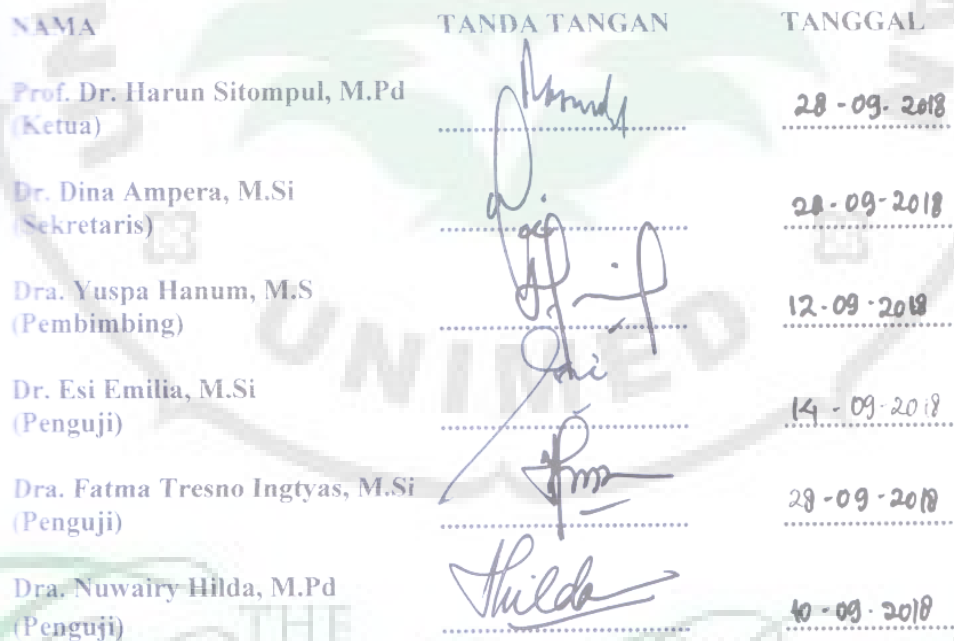 NAMA TANDA TANGAN TANGGAL
Prof. Dr. Harun Sitompul, M.Pd
(Ketua) 28 - 09 - 2018
Dr. Dina Ampera, M.Si
(Sekretaris) 28 - 09 - 2018
Dra. Yuspa Hanum, M.S
(Pembimbing) 12 - 09 - 2018
UNIMED
Dr. Esi Emilia, M.Si
(Penguji) 14 - 09 - 2018
Dra. Fatma Tresno Ingtyas, M.Si
(Penguji) 28 - 09 - 2018
Dra. Nuwairy Hilda, M.Pd Hilda
(Penguji) 10 - 09 - 2018
THE